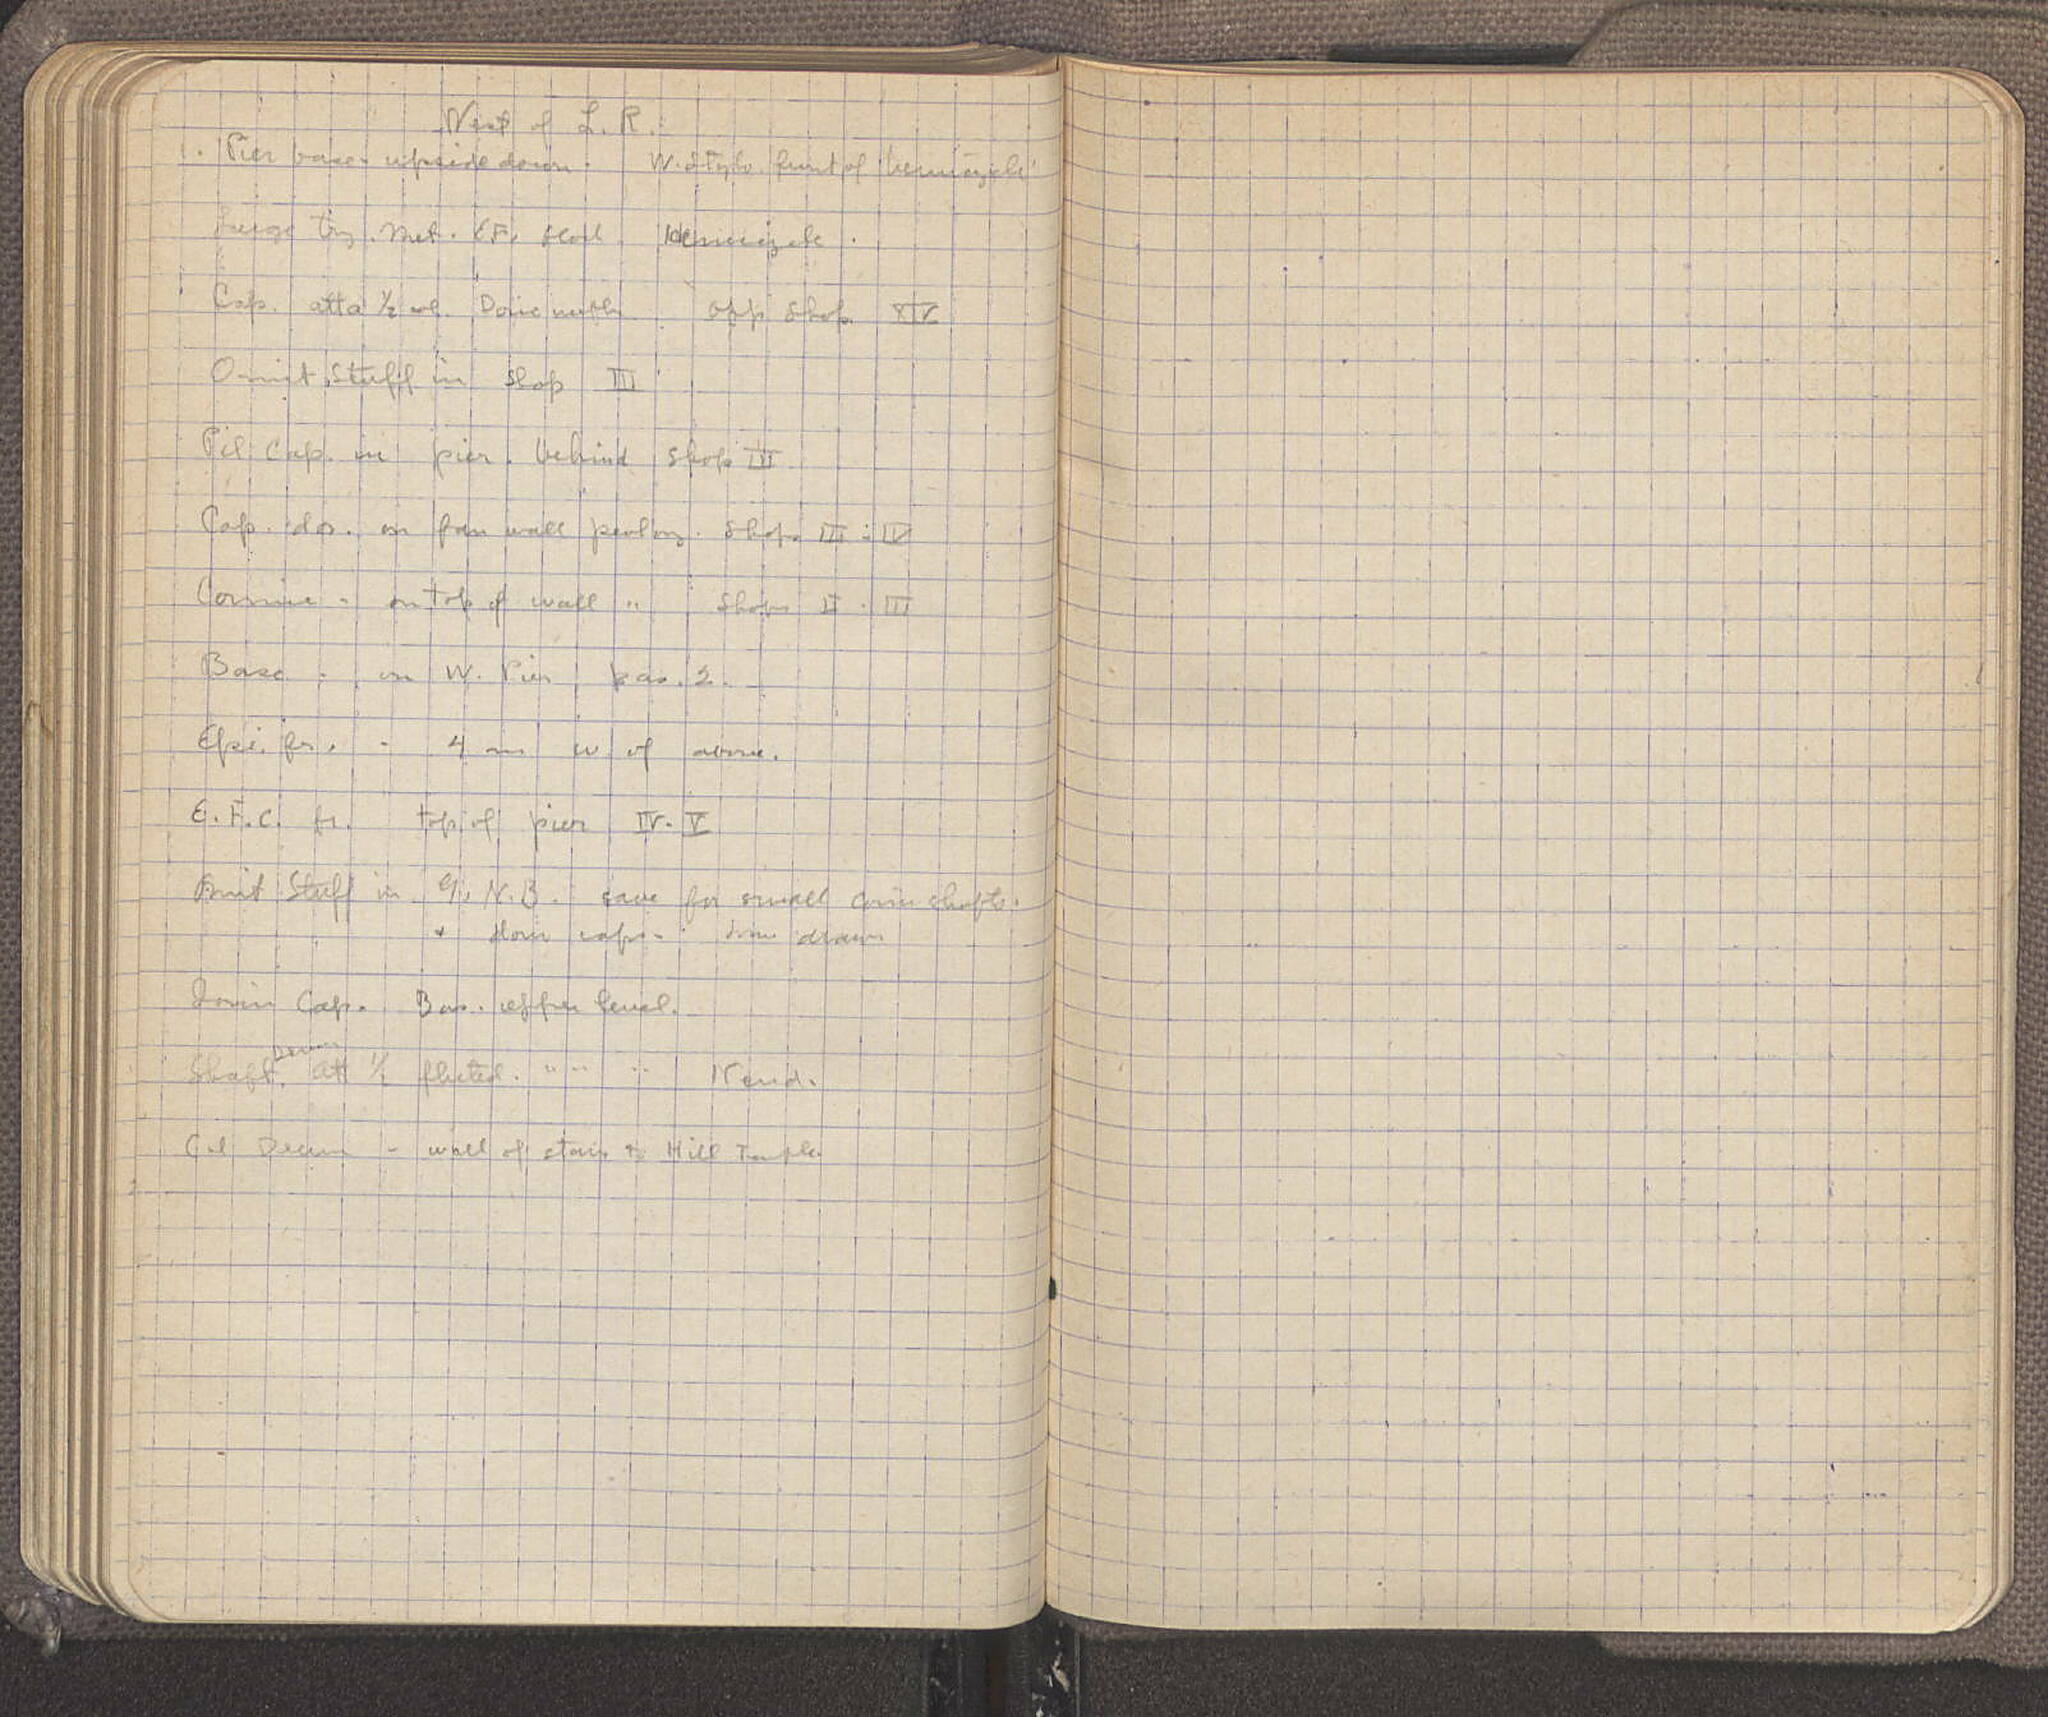 West of L. R.
1. Pier base upside down. W. Stylo. front of hemicycle
Large trig. met. E.F. Hemicycle.
Cap. atta ½ col. Doric opp Shop XIV
Omit Stuff in Shop III
Pil Cap. in pier. behind Shop III
Cap. dor. on wall Shops III : IV
Cornice - on top of wall " Shops II - III
Base - on W. Pier bas. 2.
Epi. fr. - 4 m W of above.
E.F.C. fr. top of pier IV - V
Omit Stuff in G. N. B. save for small shafts.
+ caps - drawn
Ionic Cap. Bas. upper level.
Shaft. att ½ fluted. " " " N end.
Col Drum - wall of stairs to Hill Temple.